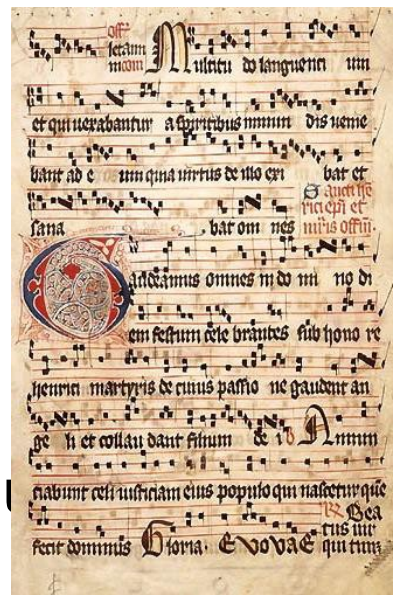 off
letam
m com Multitu do languenti um
et qui uexabantur a spiritibus inmun dis uenie
bant ad e um quia uirtus de illo exi bat et
sana bat om nes
Sancti hen
rici epi et
mris offm.
Gaudeamus omnes in do mi no di
em festum cele brantes sub hono re
henrici martyris de cuius passio ne gaudent an
ge li et collau dant filium de i Annun
ciabunt celi iusticiam eius populo qui nascetur que
fecit dominus Gloria. EVOVAE
Bea
tus uir
qui tim